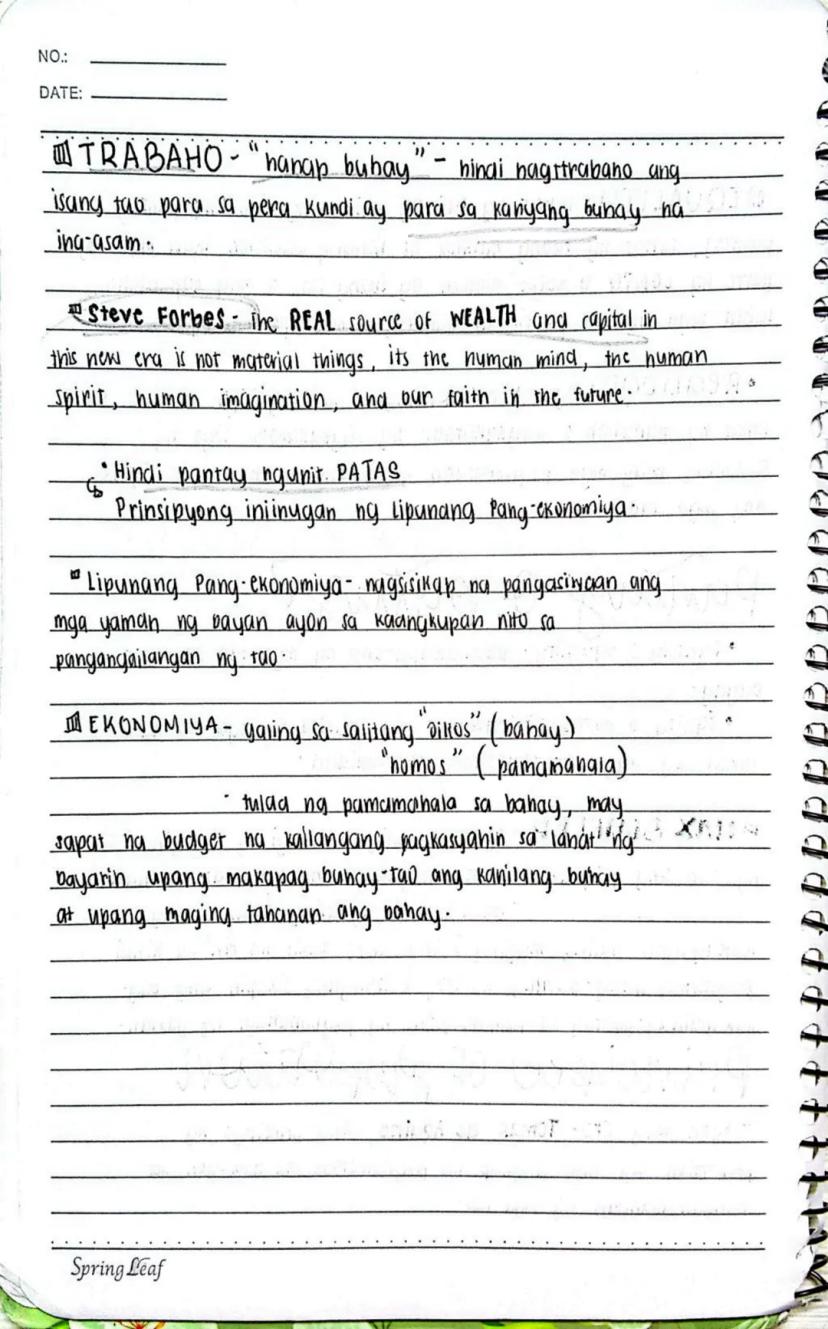 NO.:
DATE:
TRABAHO - "hanap buhay" - hindi nagttrabaho ang
isang tao para sa pera kundi ay para sa kanyang buhay na
ina-asam.
Steve Forbes - The REAL source of WEALTH and capital in
this new era is not material things, its the human mind, the human
spirit, human imagination, and our faith in the future.
• Hindi pantay ngunit PATAS
Prinsipyong iniinugan ng Lipunang Pang-ekonomiya.
Lipunang Pang-ekonomiya - nagsisikap na pangasiwaan ang
mga yaman ng bayan ayon sa kaangkupan nito sa
pangangailangan ng tao
EKONOMIYA - galing sa salitang "oikos" (bahay)
"nomos" (pamamahala)
• tulad ng pamamahala sa bahay, may
sapat na budget na kailangang pagkasyahin sa lahat ng
bayarin upang makapag buhay-tao ang kanilang buhay
at upang maging tahanan ang bahay.
Spring Leaf